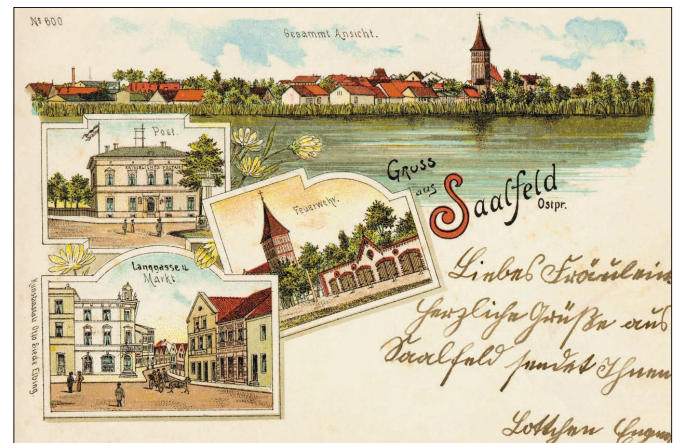 No 600
Gesammt Ansicht.
Post.
KAISERLICHES POSTAMT
Gruss
aus
Saalfeld
Ostpr.
Feuerwehr.
Langgasse u
Markt
Kunstanstalt Otto Siede Elbing.
Liebes Fräulein
herzliche Grüße aus
Saalfeld sendet Ihnen
Lottchen